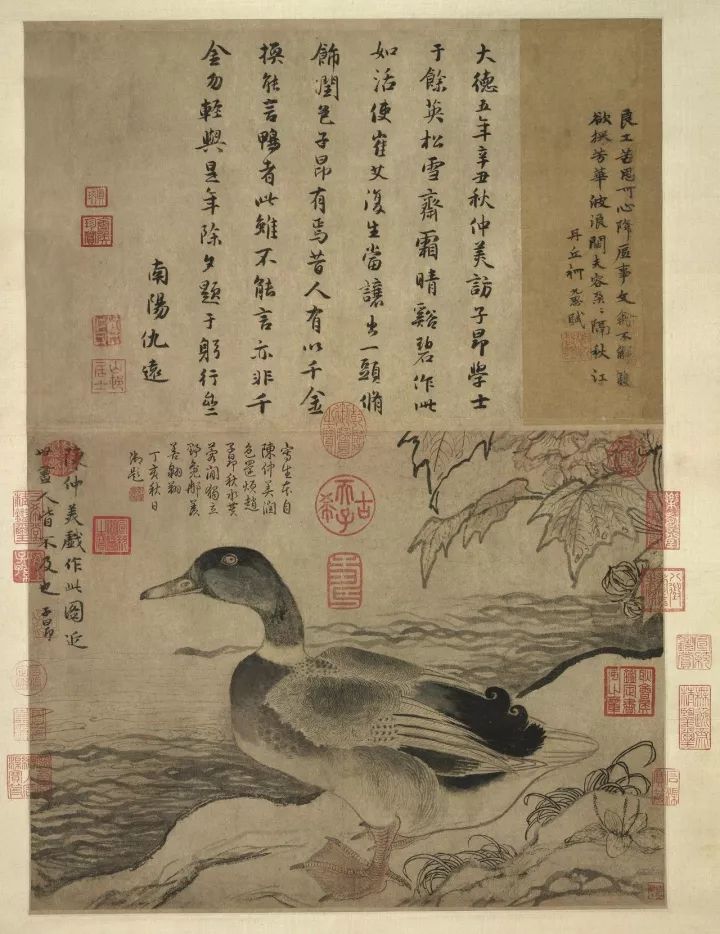 良工苦思可心降底事文禽不解雙
欲採芳華波浪闊夫容朶〻隔秋江
丹丘柯九思賦
大德五年辛丑秋仲美訪子昂學士
于餘英松雪齋霜晴谿碧作此
如活使崔艾復生當讓出一頭脩
飾潤色子昂有焉昔人有以千金
換能言鴨者此雖不能言亦非千
金勿輕與是年除夕題于躬行齋
南陽仇遠
寫生本自
陳仲美潤
色還煩趙
子昂秋水芙
蓉閒獨立
野鳧那羨
善翱翔
丁亥秋日
御題
古希天子
陳仲美戲作此圖近
世畫人皆不及也 子昂